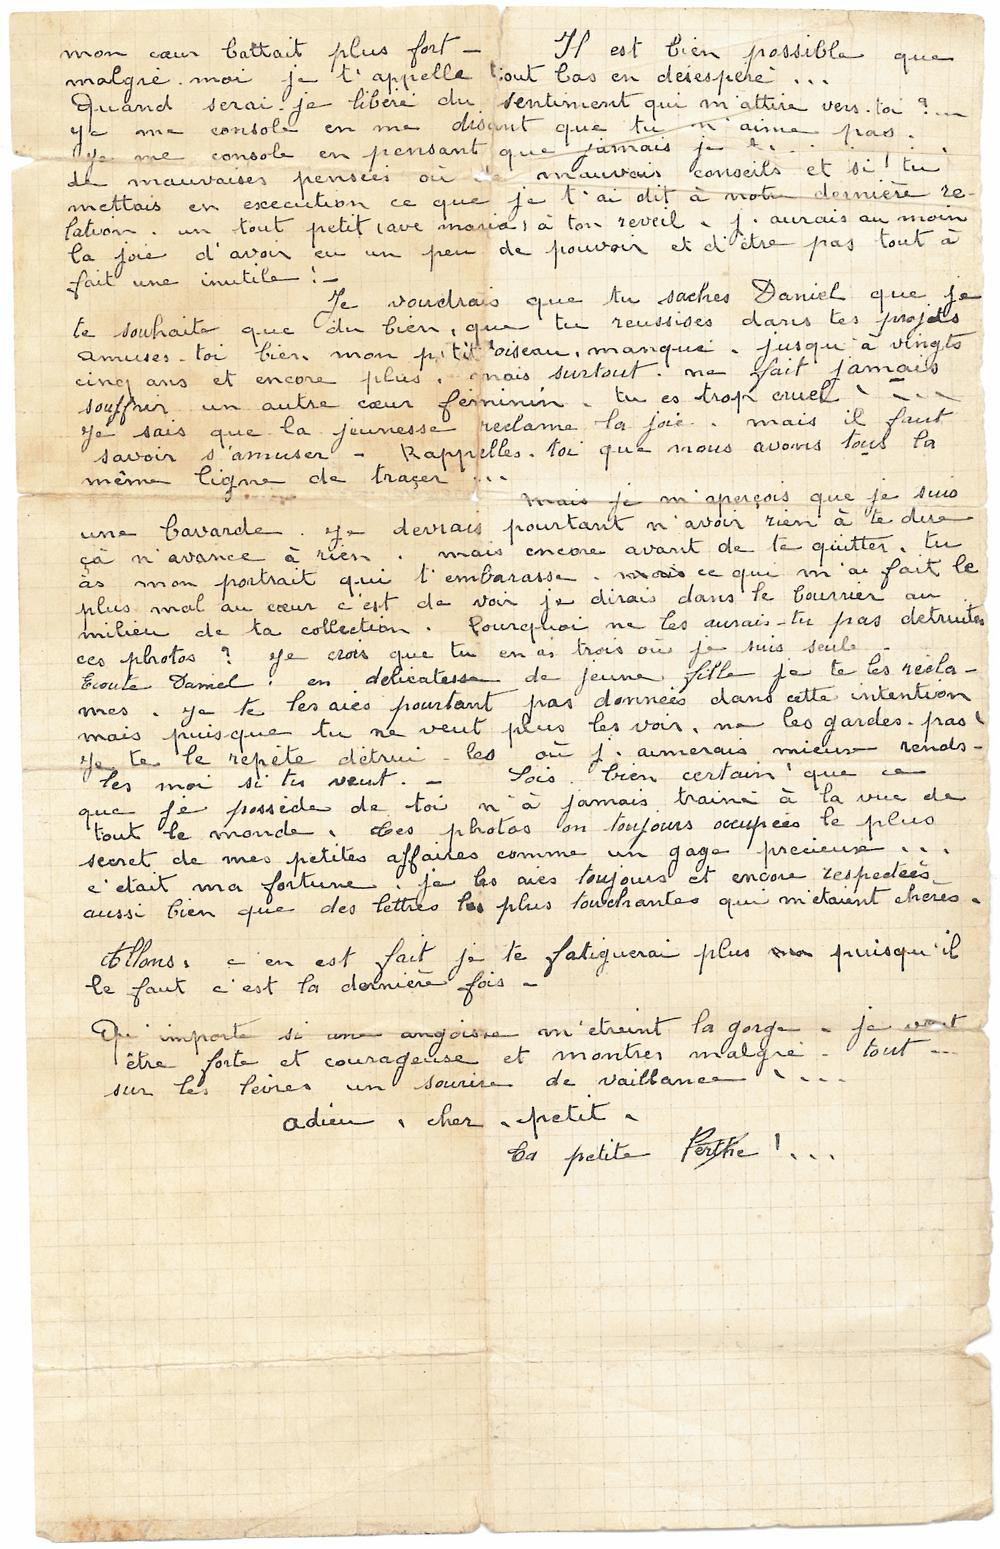 mon cœur battait plus fort — Il est bien possible que
malgré moi je t'appelle tout bas en désespéré ...
Quand serai-je libéré du sentiment qui m'attire vers toi ?...
Je me console en me disant que tu n'aime pas.
Je me console en pensant que jamais je t. . . . . . .
de mauvaises pensées où de mauvais conseils et si ! tu
mettais en execution ce que je t'ai dit à notre dernière re-
lation. un tout petit (ave maria) à ton reveil. j'aurais au moin
la joie d'avoir eu un peu de pouvoir et d'être pas tout à
fait une inutile ! —
Je voudrais que tu saches Daniel que je
te souhaite que du bien, que tu reussises dans tes projets
amuses-toi bien mon p'tit oiseau, manqué. jusqu'à vingts
cinq ans et encore plus. mais surtout. ne fait jamais
souffrir un autre cœur féminin. tu es trop cruel ! ...
Je sais que la jeunesse réclame la joie. mais il faut
savoir s'amuser — Rappelles-toi que nous avons tous la
même ligne de traçer ...
Mais je m'aperçois que je suis
une bavarde. Je devrais pourtant n'avoir rien à te dire
çà n'avance à rien. mais encore avant de te quitter, tu
às mon portrait qui t'embarasse. mais ce qui m'a fait le
plus mal au cœur c'est de voir je dirais dans le bourrier au
milieu de ta collection. Pourquoi ne les aurais-tu pas detruites
ces photos ? Je crois que tu en as trois où je suis seule —
Ecoute Daniel : en délicatesse de jeune fille je te les récla-
mes. Je te les aies pourtant pas données dans cette intention
mais puisque tu ne veut plus les voir, ne les gardes-pas !
Je te le repète détrui-les où j'aimerais mieux rends-
les moi si tu veut. — Sois bien certain ! que ce
que je possède de toi n'à jamais trainé à la vue de
tout le monde. Ces photos on toujours occupées le plus
secret de mes petites affaires comme un gage precieux ...
c'était ma fortune. je les aies toujours et encore respectées
aussi bien que des lettres les plus touchantes qui m'étaient chères.
Allons, c'en est fait je te fatiguerai plus puisqu'il
le faut c'est la dernière fois —
Qu'importe si une angoisse m'etreint la gorge — je veut
être forte et courageuse et montrer malgré-tout —
sur les lèvres un sourire de vaillance ! ...
adieu, cher petit.
Ta petite Perthe ! ...